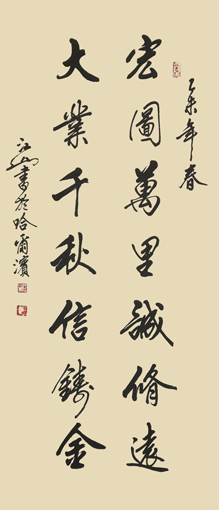 乙未年春
宏圖萬里誠脩遠
大業千秋信鑄金
江山書於哈爾濱